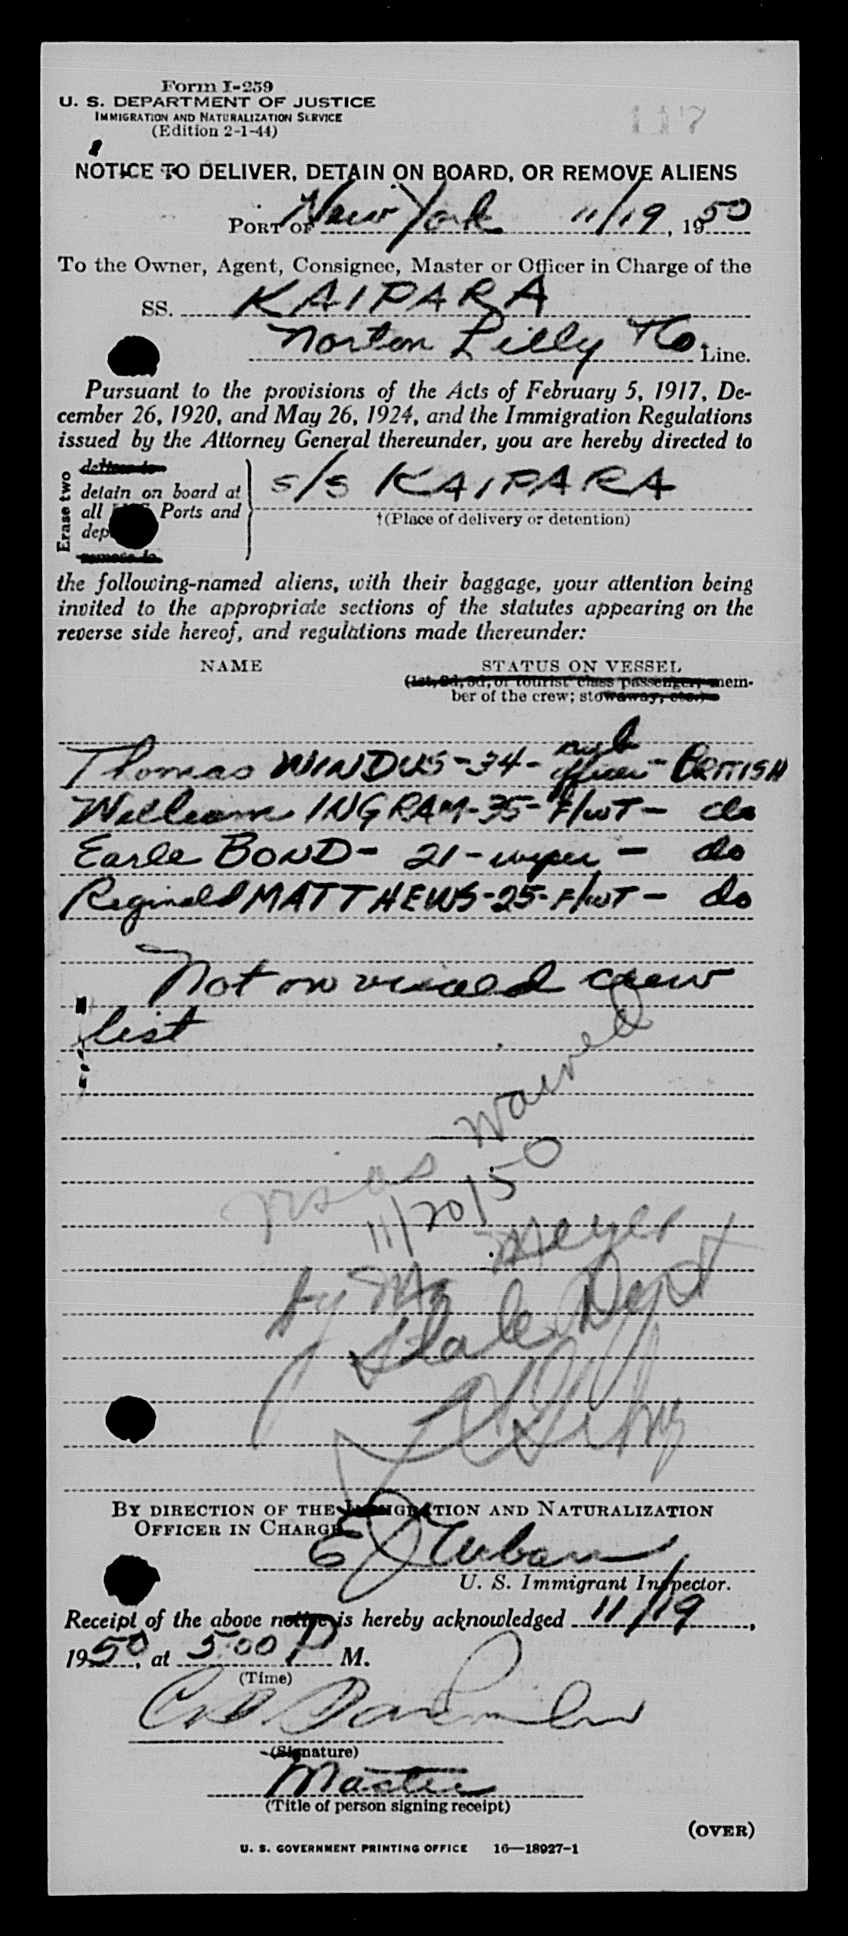 Form I-259
U. S. DEPARTMENT OF JUSTICE
IMMIGRATION AND NATURALIZATION SERVICE
(Edition 2-1-44)
117
NOTICE TO DELIVER, DETAIN ON BOARD, OR REMOVE ALIENS
PORT OF New York 11/19, 1950
To the Owner, Agent, Consignee, Master or Officer in Charge of the
SS. KAIPARA
Norton Lilly & Co. Line.
Pursuant to the provisions of the Acts of February 5, 1917, De-
cember 26, 1920, and May 26, 1924, and the Immigration Regulations
issued by the Attorney General thereunder, you are hereby directed to
Erase two
deliver to
detain on board at
all Ports and
dep
remove to
s/s KAIPARA
†(Place of delivery or detention)
the following-named aliens, with their baggage, your attention being
invited to the appropriate sections of the statutes appearing on the
reverse side hereof, and regulations made thereunder:
NAME
STATUS ON VESSEL
(1st, 2d, 3d, or tourist class passenger, mem-
ber of the crew; stowaway, etc.)
Thomas WINDUS-34- officer - BRITISH
William INGRAM-35-F/WT- do
Earle BOND- 21-wiper - do
Reginald MATTHEWS-25-F/WT- do
Not on visaed crew
list
visas waived
11/20/50
by Mr Meyer
State Dept
BY DIRECTION OF THE IMMIGRATION AND NATURALIZATION
OFFICER IN CHARGE
E J Urban
U. S. Immigrant Inspector.
Receipt of the above notice is hereby acknowledged 11/19,
1950, at 5:00 P M.
(Time)
(Signature)
Master
(Title of person signing receipt)
(OVER)
U. S. GOVERNMENT PRINTING OFFICE 16—18927-1